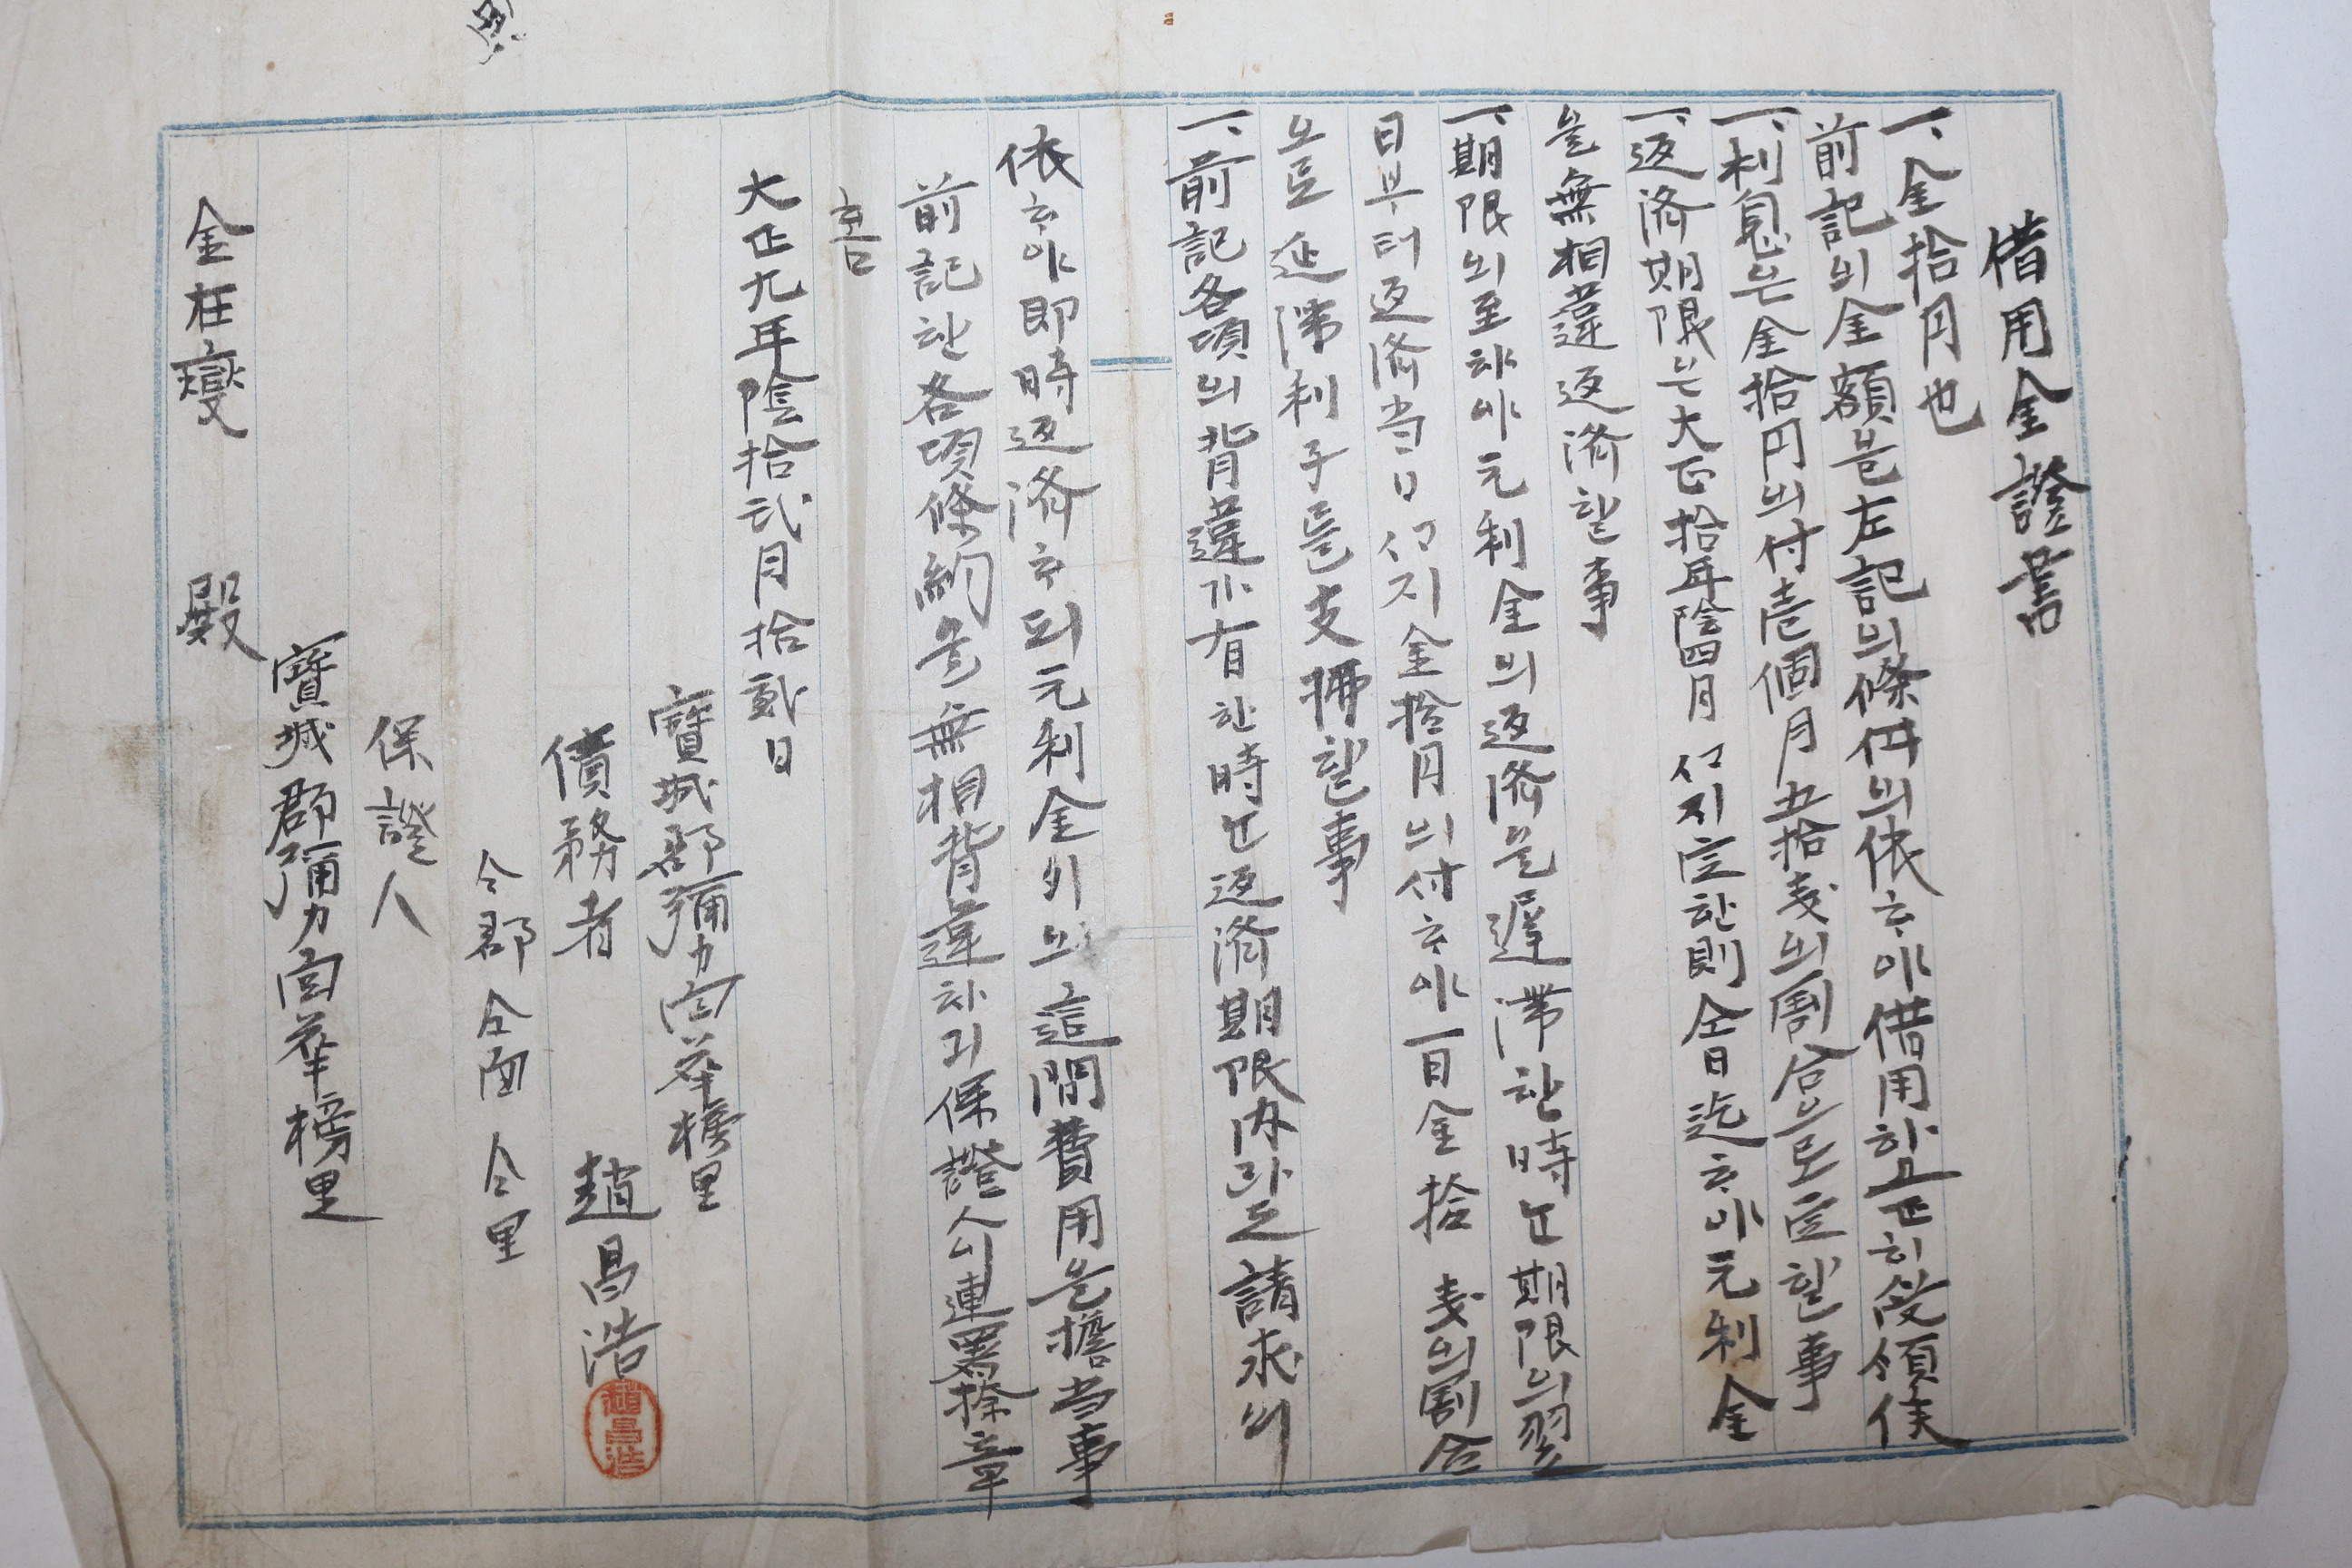 借用金證書
一、金拾円也
前記의金額을左記의條件의依ᄒᆞ야借用하고正히受領候
一、利息은金拾円의付壱個月五拾戔의割合으로定할事
一、返濟期限은大正拾年陰四月 ᄭᆞ지定한則仝日迄ᄒᆞ야元利金
을無相違返濟할事
一、期限의至하야元利金의返濟을遲滯한時ᄂᆞᆫ期限의翌
日부터返濟当日ᄭᆞ지金拾円의付ᄒᆞ야一日金拾戔의割合
으로延滯利子를支拂할事
一、前記各項의背違가有한時ᄂᆞᆫ返濟期限內라도請求의
依ᄒᆞ야即時返濟ᄒᆞ되元利金外의這間費用을擔当事
前記한各項條約을無相背違하기保證人이連署捺章
홈
大正九年陰拾弐月拾貳日
寶城郡彌力面華榜里
債務者 趙昌浩
趙昌浩
仝郡仝面仝里
保證人
寶城郡彌力面華榜里
金在燮 殿